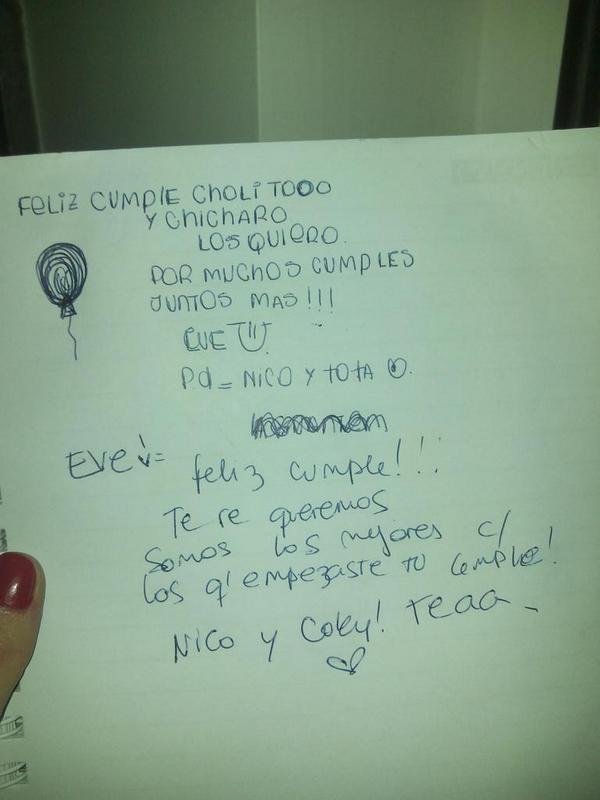 FELIZ CUMPLE CHOLITOOO
Y CHICHARO
LOS QUIERO.
POR MUCHOS CUMPLES
JUNTOS MAS!!!
EVE
Pd = NICO Y TOTA
EVE =
feliz cumple!!!
Te re queremos
Somos los mejores c/
los q' empezaste tu cumple!
Nico y Coky! Teaa